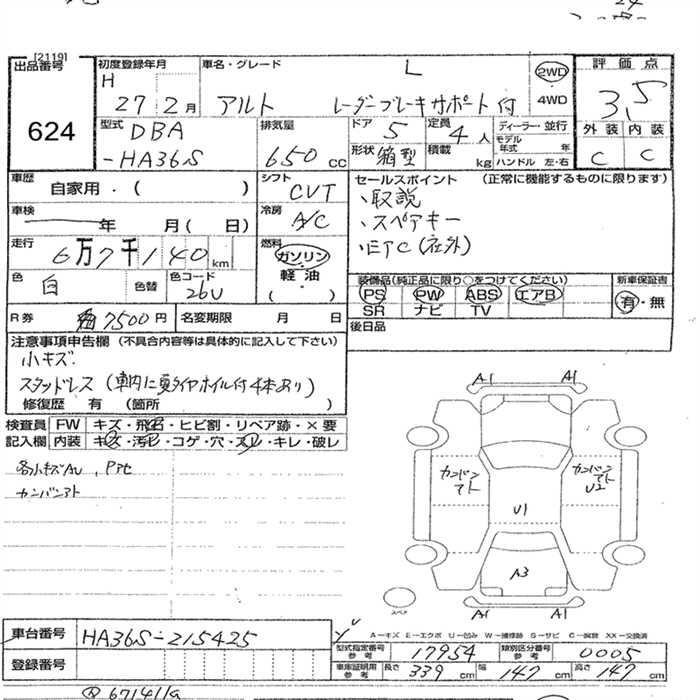 [2119]
出品番号
624
初度登録年月
H 27:2月
車名・グレード
L
アルト レーダーブレーキサポート付
2WD
4WD
評価点
3.5
外装 内装
C C
型式
DBA
-HA36S
排気量
650cc
ドア 5
形状 箱型
定員 4人
積載 kg
ディーラー・並行
モデル年式 年
ハンドル 左・右
車歴 自家用・( )
シフト
CVT
車検 年 月( 日)
冷房
A/C
走行
6万7千140km
燃料
ガソリン
軽油
( )
色 白 色替
色コード
26U
R券 7500円
名変期限 月 日
セールスポイント (正常に機能するものに限ります)
、取説
、スペアキー
、ETC(社外)
装備品(純正品に限り○をつけてください)
PS PW ABS エアB
SR ナビ TV
新車保証書
有・無
後日品
注意事項申告欄 (不具合内容等は具体的に記入して下さい)
小キズ.
スタッドレス(車内に夏タイヤホイル付4本あり)
修復歴 有 (箇所 )
検査員記入欄
FW キズ・飛石・ヒビ割・リペア跡・×要
内装 キズ・汚レ・コゲ・穴・スレ・キレ・破レ
カンバンアト
A1 A1
カンバンアト
カンバンアト
U2
U1
A3
A1 A1
スペア
A―キズ E―エクボ U―凹み W―補修跡 S―サビ C―腐蝕 XX―交換済
車台番号 HA36S-215425
登録番号
型式指定番号 参考 17954
類別区分番号 参考 0005
車庫証明用 参考 長さ 339cm 幅 147cm 高さ 147cm